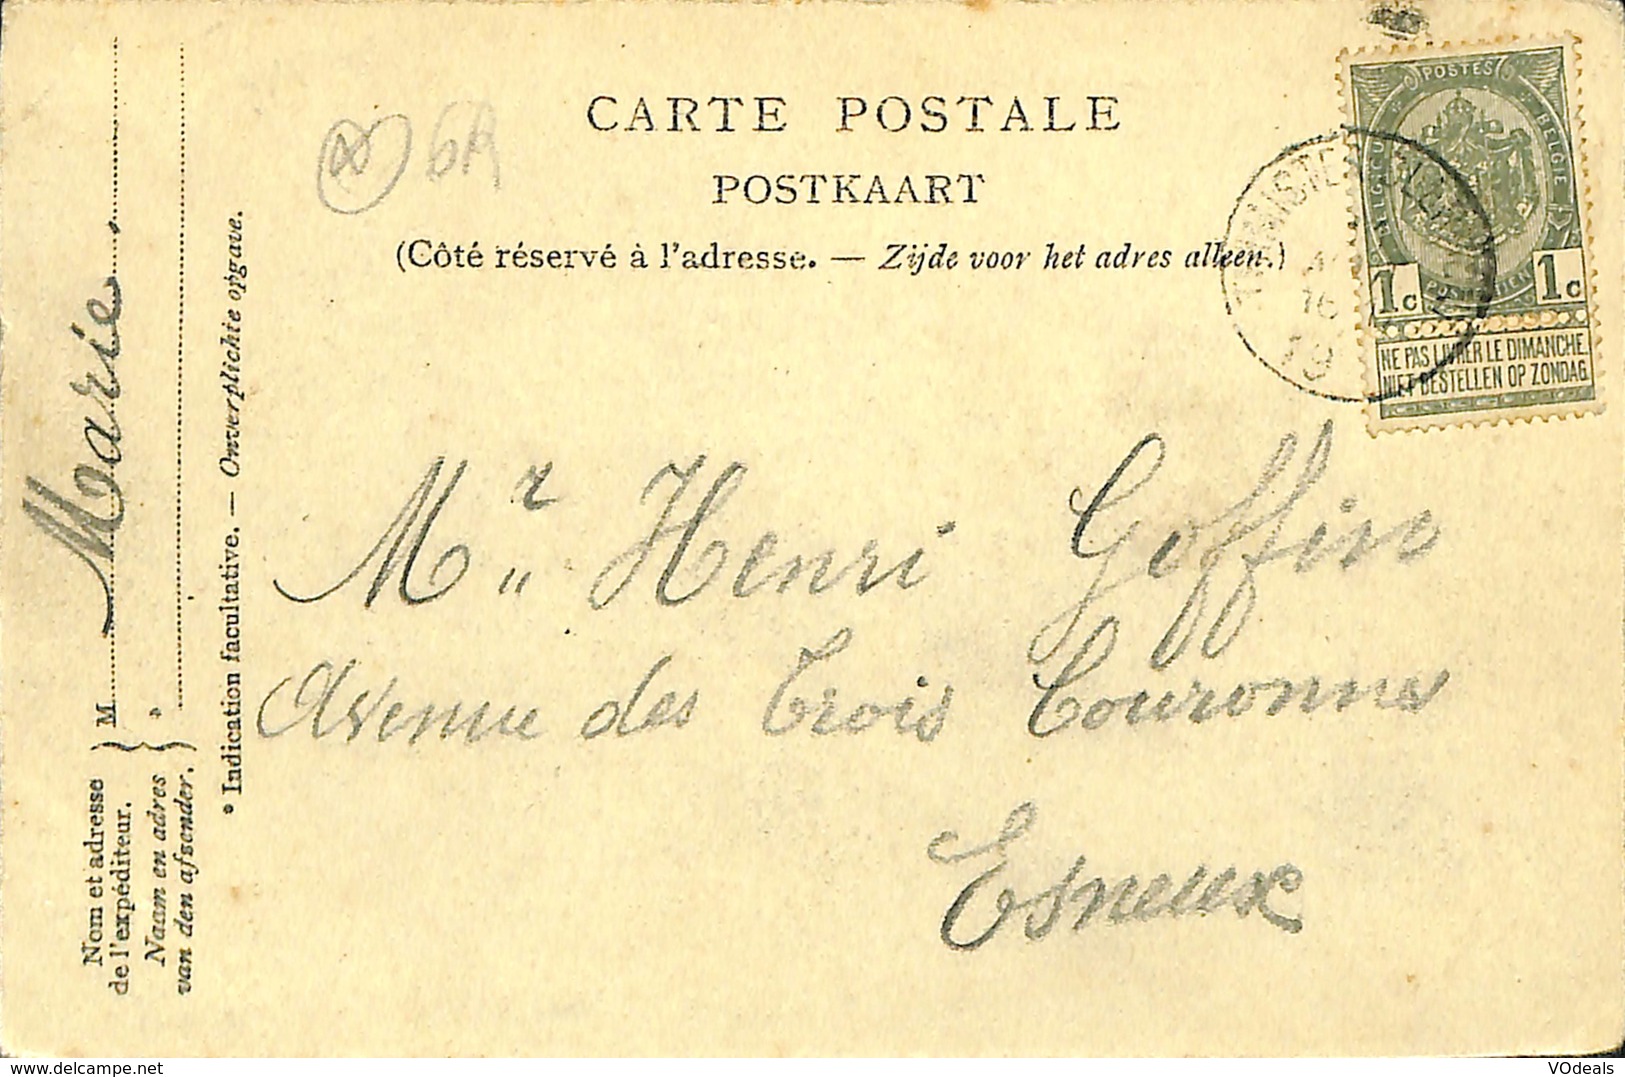 CARTE POSTALE
POSTKAART
(Côté réservé à l'adresse. — Zijde voor het adres alleen.)
POSTES
BELGIQUE
BELGIE
POSTERIJEN
1c 1c
NE PAS LIVRER LE DIMANCHE.
NIET BESTELLEN OP ZONDAG.
16
19
6A
Mr. Henri Goffin
Avenue des Trois Couronnes
Esneux
Nom et adresse
de l'expéditeur.
Naam en adres
van den afzender.
M.
Marie
* Indication facultative. — Onverplichte opgave.
www.delcampe.net
VOdeals